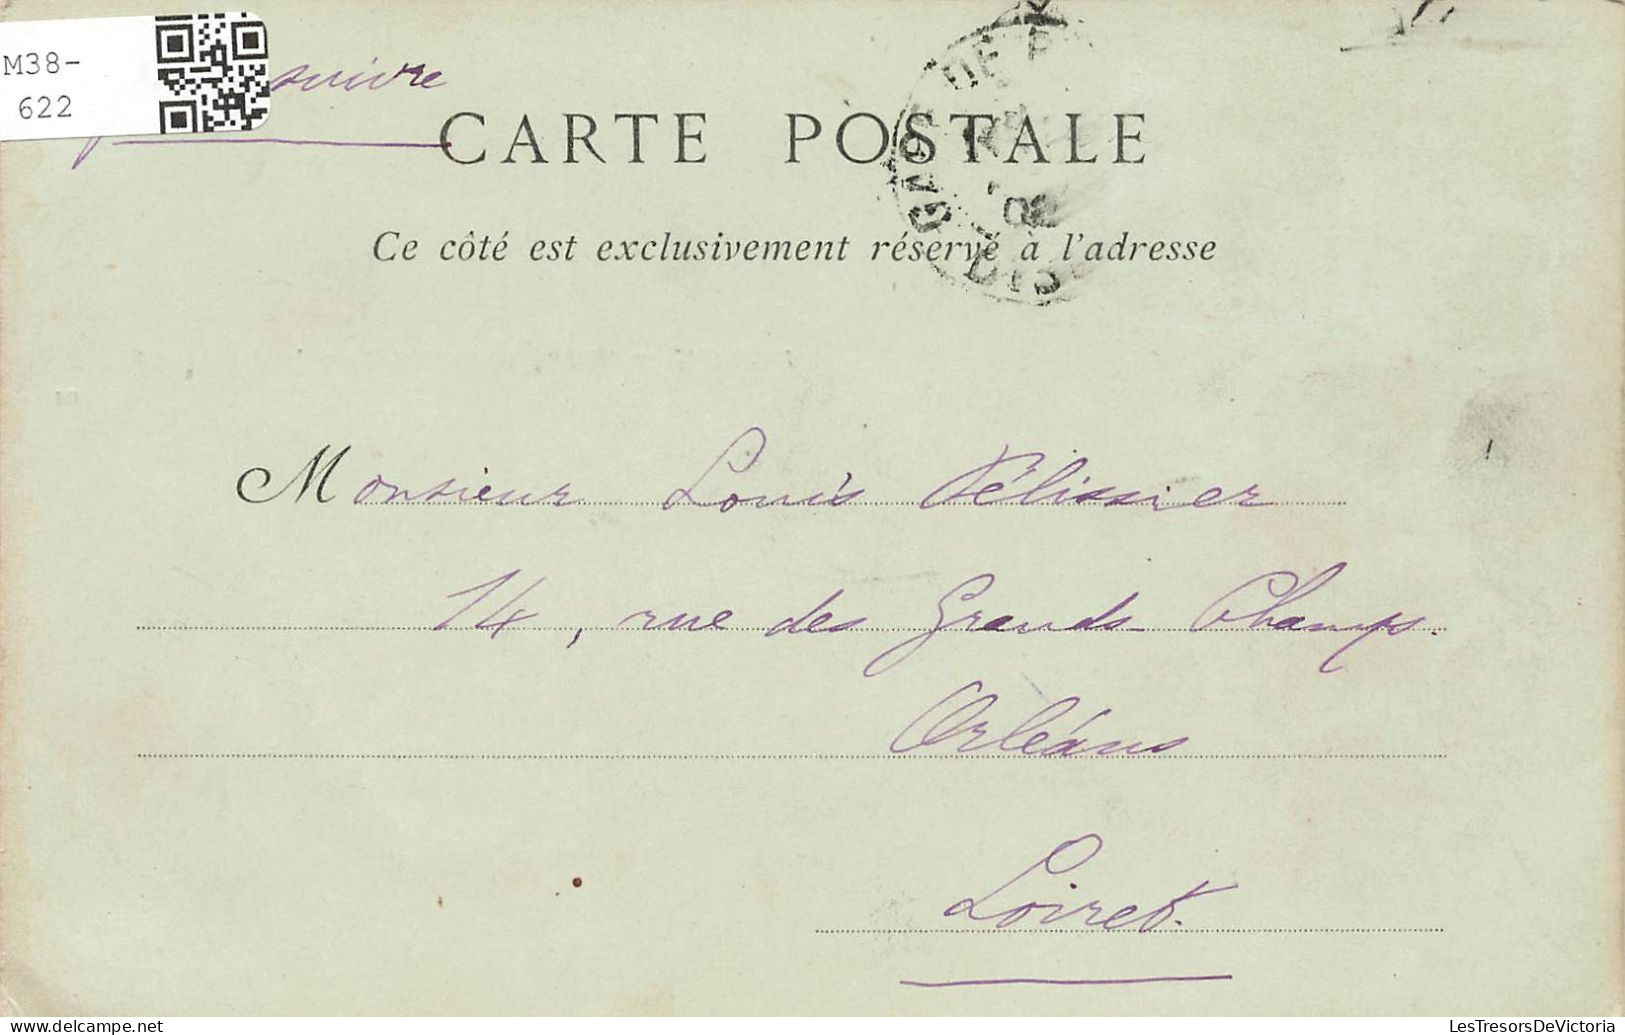 M38-
622
suivre
CARTE POSTALE
Ce côté est exclusivement réservé à l'adresse
Monsieur Louis Pélissier
14, rue des Grands Champs.
Orléans
Loiret.
LesTresorsDeVictoria